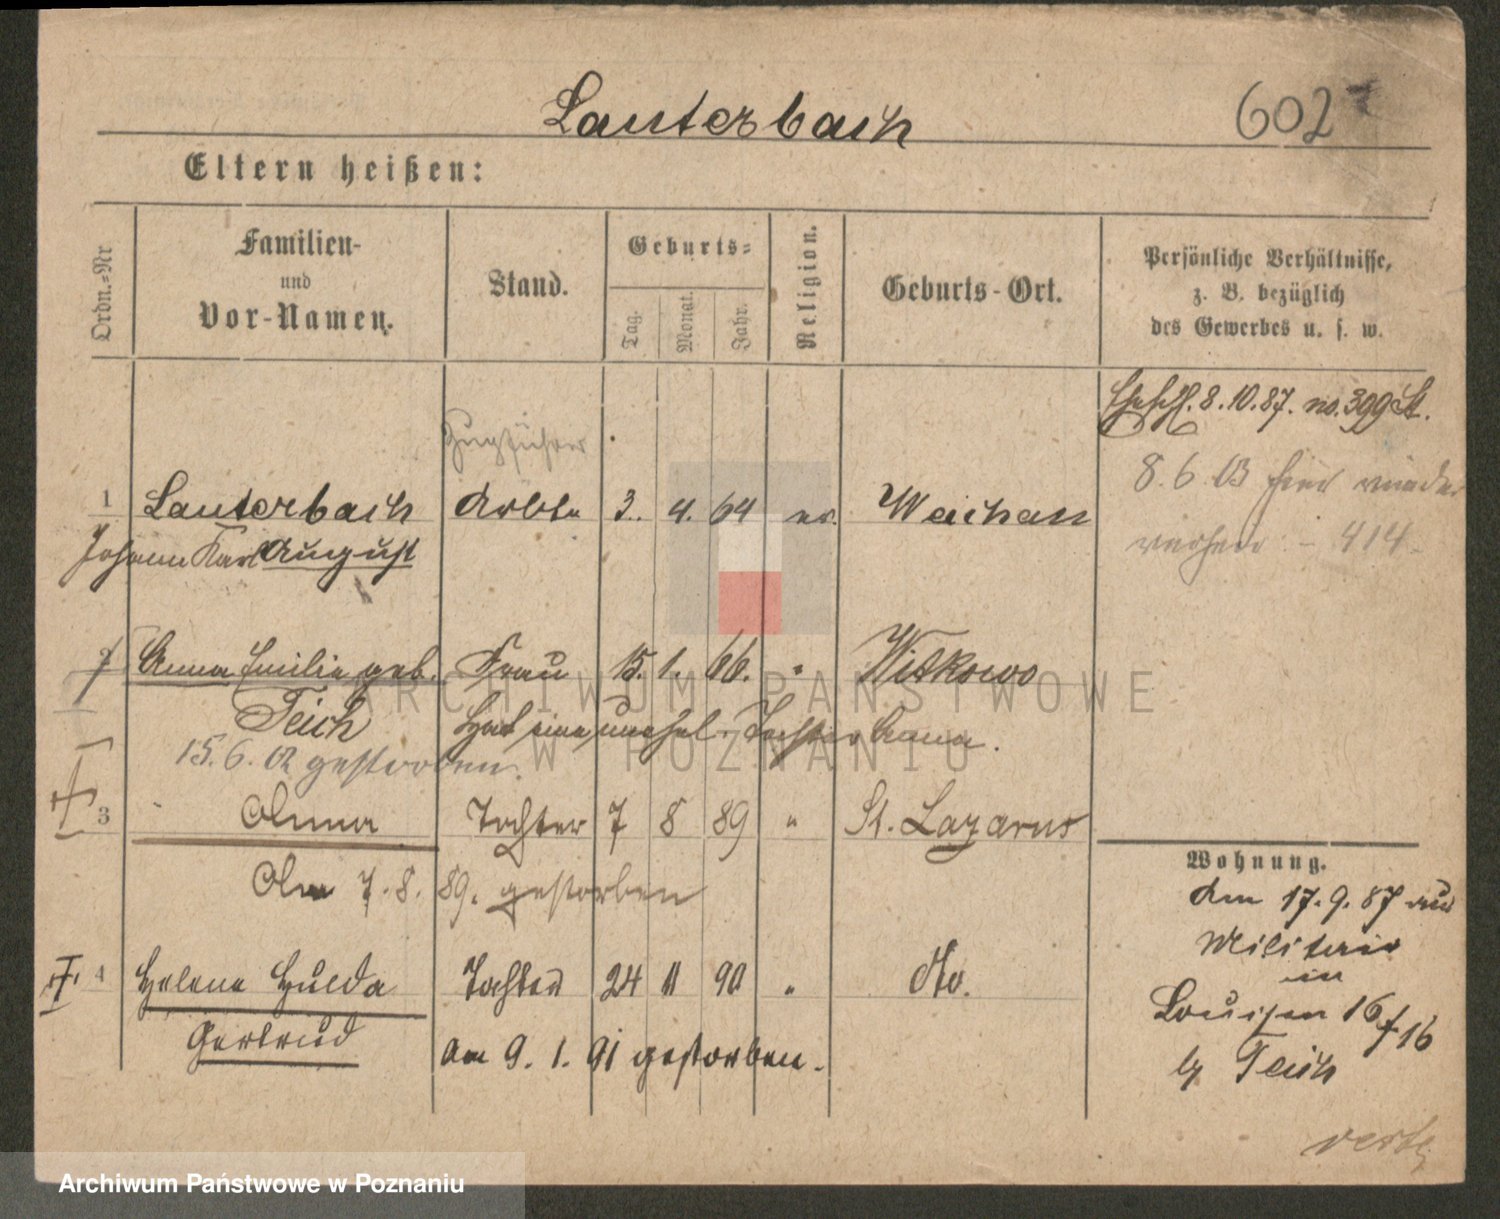 Lauterbach 602
Eltern heißen:
Ordn.-Nr
Familien-
und
Vor-Namen.
Stand.
Geburts-
Tag.
Monat.
Jahr.
Religion.
Geburts-Ort.
Persönliche Verhältnisse,
z. B. bezüglich
des Gewerbes u. s. w.
8.10.87. no. 399
Zugführer
8.6.03 hier wieder
1 Lauterbach 3. 4. 64 ev.
414
Johann Karl August
2 Anna Emilie geb. Frau 15. 1. 66. " Witkowo
Teich Hat eine unehel. Tochter Anna.
15.6.02 gestorben.
3 Anna Tochter 7 8 89 " St. Lazarus
Am 7.8.89. gestorben
Wohnung.
Am 17.9.87 aus
Militair
in
4 Helene Hulda Tochter 24 11 90 " Dto.
Louisen 16/16
Gertrud
Am 9. 1. 91 gestorben.
by Teich
verte
ARCHIWUM PAŃSTWOWE
W POZNANIU
Archiwum Państwowe w Poznaniu